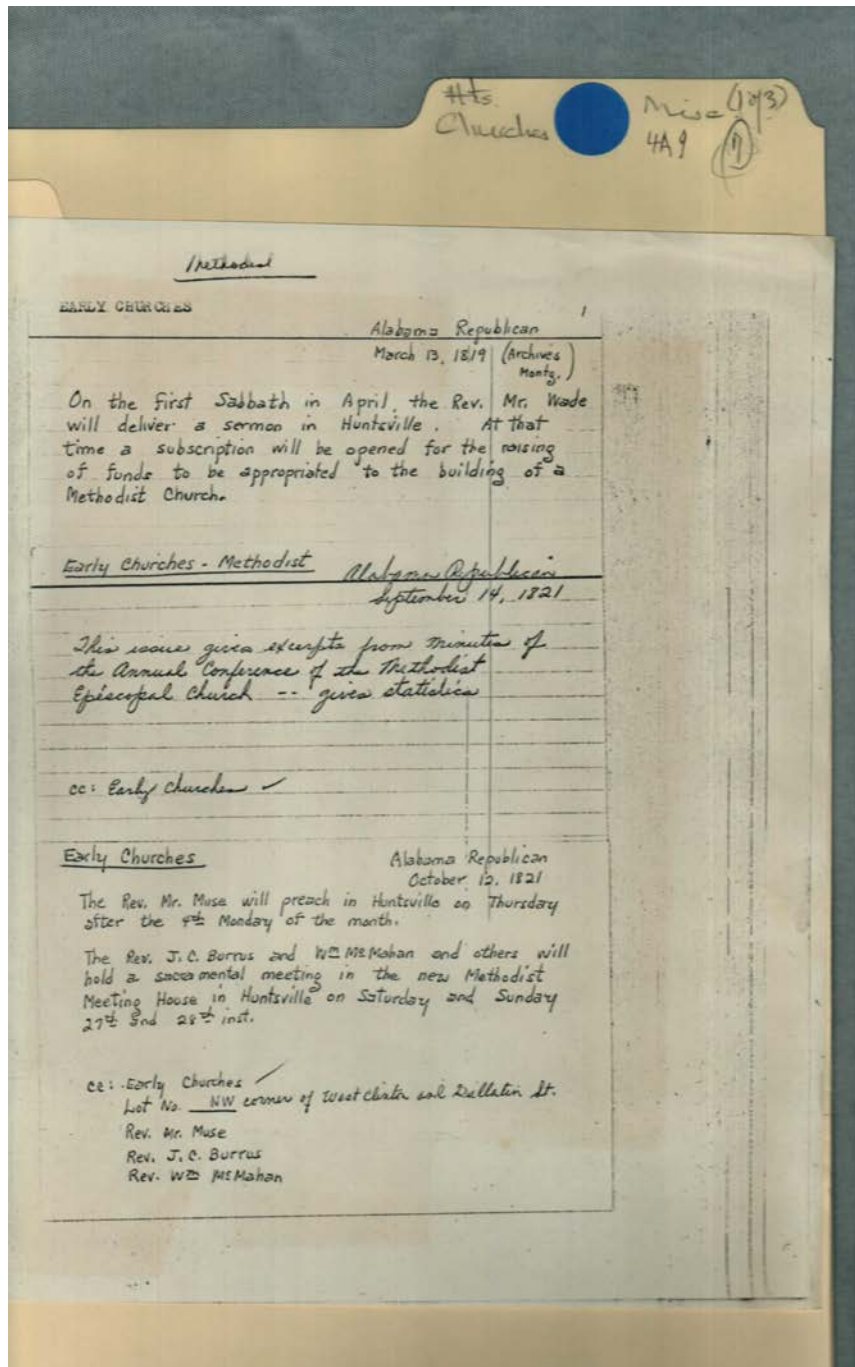 Hts. Misc (1 of 3)
Churches 4A9 (7)
Methodist
EARLY CHURCHES 1
Alabama Republican
March 13, 1819 (Archives
Montg.)
On the first Sabbath in April, the Rev. Mr. Wade
will deliver a sermon in Huntsville. At that
time a subscription will be opened for the raising
of funds to be appropriated to the building of a
Methodist Church.
Early Churches - Methodist Alabama Republican
September 14, 1821
This issue gives excerpts from minutes of
the Annual Conference of the Methodist
Episcopal Church -- gives statistics
cc: Early Churches ✓
Early Churches Alabama Republican
October 12, 1821
The Rev. Mr. Muse will preach in Huntsville on Thursday
after the 4th Monday of the month.
The Rev. J. C. Burrus and Wm McMahan and others will
hold a sacramental meeting in the new Methodist
Meeting House in Huntsville on Saturday and Sunday
27th and 28th inst.
cc: Early Churches ✓
Lot No. NW corner of West Clinton and Gallatin St.
Rev. Mr. Muse
Rev. J. C. Burrus
Rev. Wm McMahan